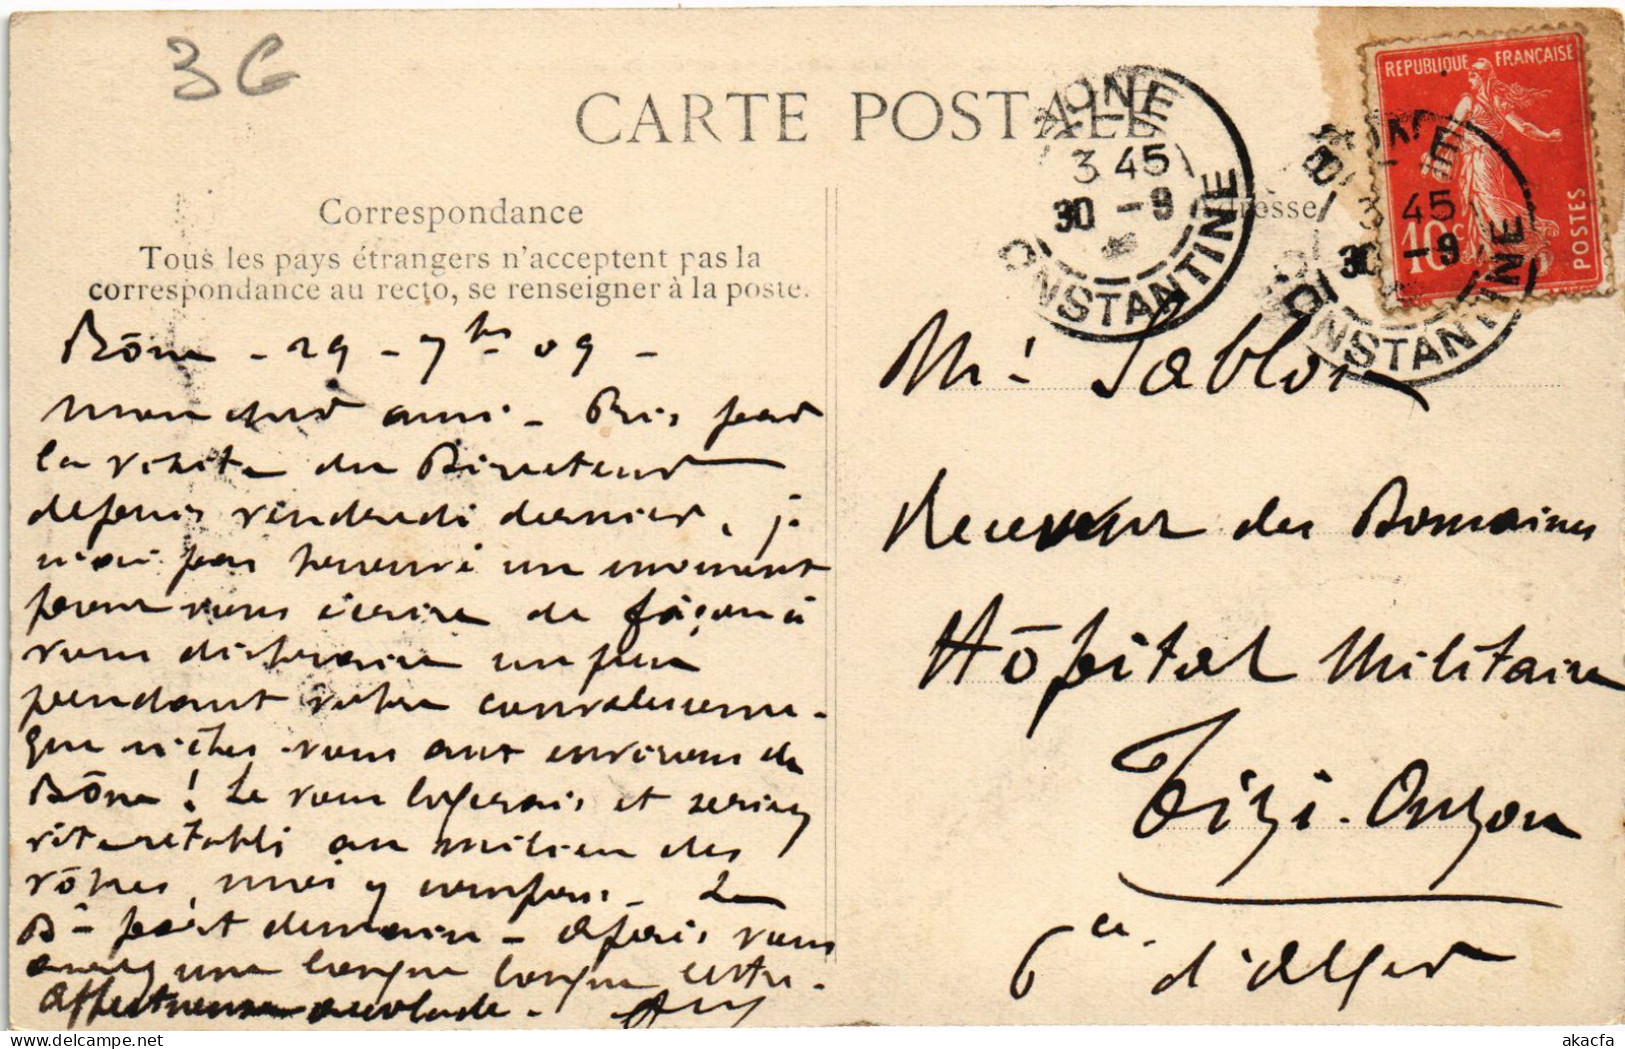 3G
CARTE POSTALE
Correspondance
Tous les pays étrangers n'acceptent pas la
correspondance au recto, se renseigner à la poste.
Adresse
REPUBLIQUE FRANÇAISE
10c
POSTES
BÔNE
3 45
30 -9
CONSTANTINE
BÔNE
3 45
30 -9
CONSTANTINE
Bône - 29 - 7bre 09 -
mon cher ami - Pris par
la visite du Directeur
depuis vendredi dernier, je
n'ai pas trouvé un moment
pour vous écrire de façon à
vous distraire un peu
pendant votre convalescence.
Que n'êtes-vous aux environs de
Bône! Je vous logerais et seriez
vite rétabli au milieu des
vôtres, moi y compris. Le
D- part demain - après vous
aurez une longue longue lettre.
Affectueuse accolade.
Mr Sablon
Receveur des Domaines
Hôpital Militaire
Tizi-Ouzou
d'Alger
akacfa